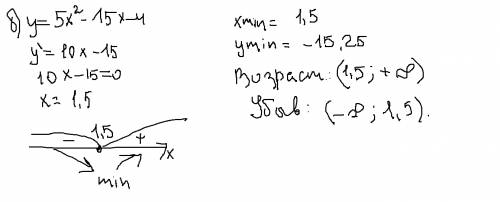 б) y = 5x² - 15x - 4
y' = 10x - 15
10x - 15 = 0
x = 1,5
1,5
- + x
min
xmin = 1,5
ymin = -15,25
Возраст: (1,5; +∞)
Убыв: (-∞; 1,5).